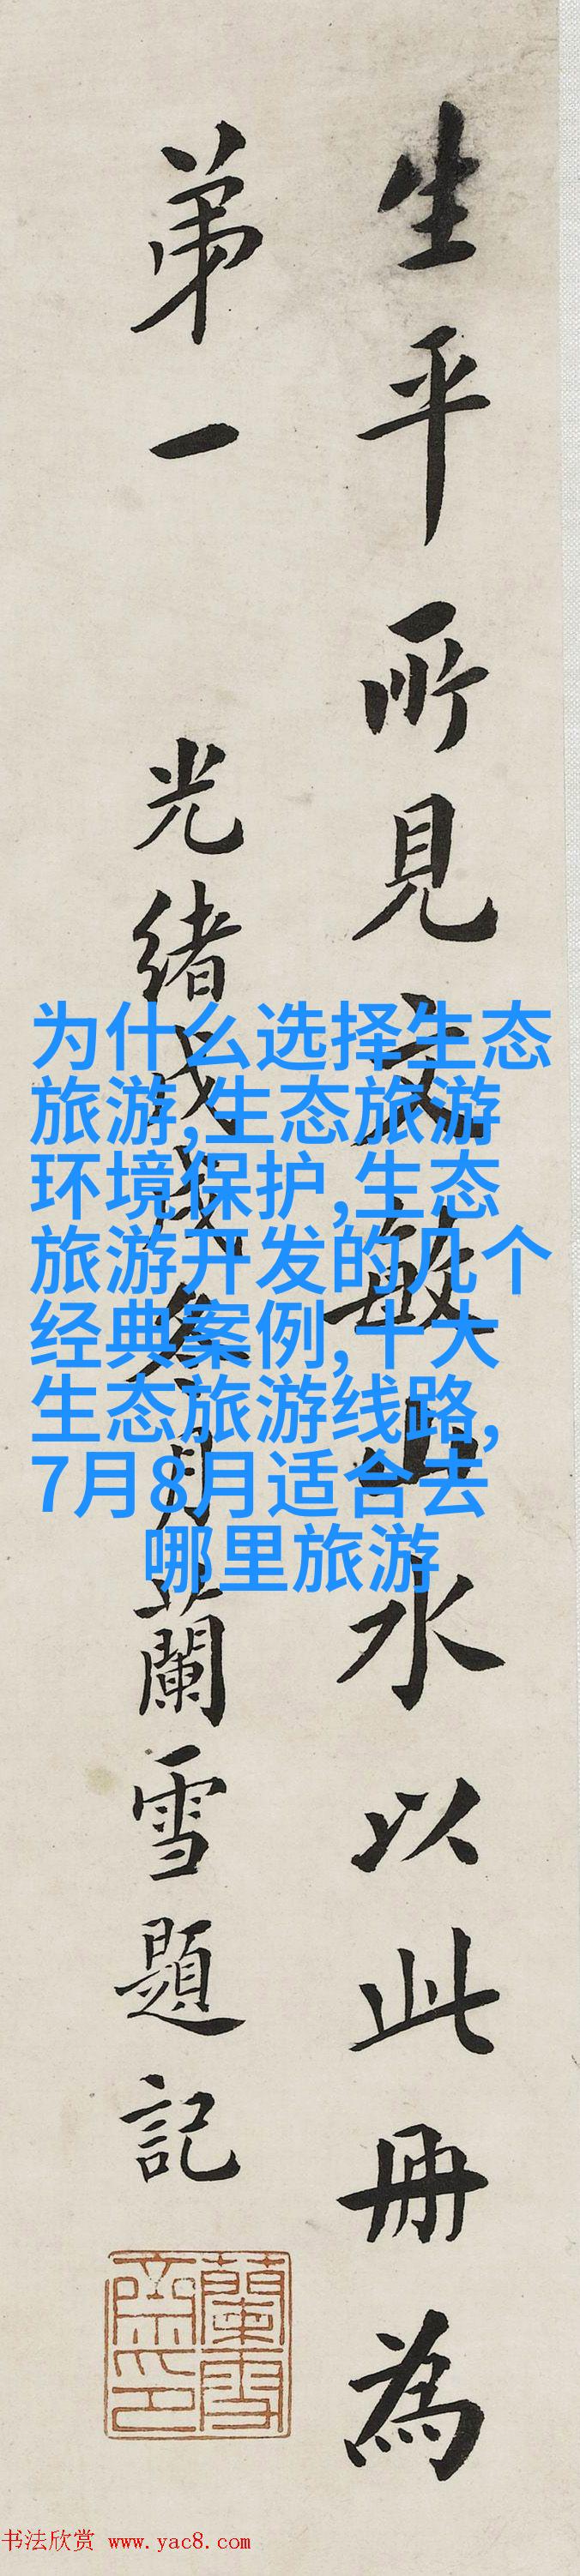 生平所見文敏山水以此冊為
弟一
光緒戊戌冬月蘭雪題記
蘭雪
齋印
为什么选择生态
旅游,生态旅游
环境保护,生态
旅游开发的几个
经典案例,十大
生态旅游线路,
7月8月适合去
哪里旅游
书法欣赏 www.yac8.com